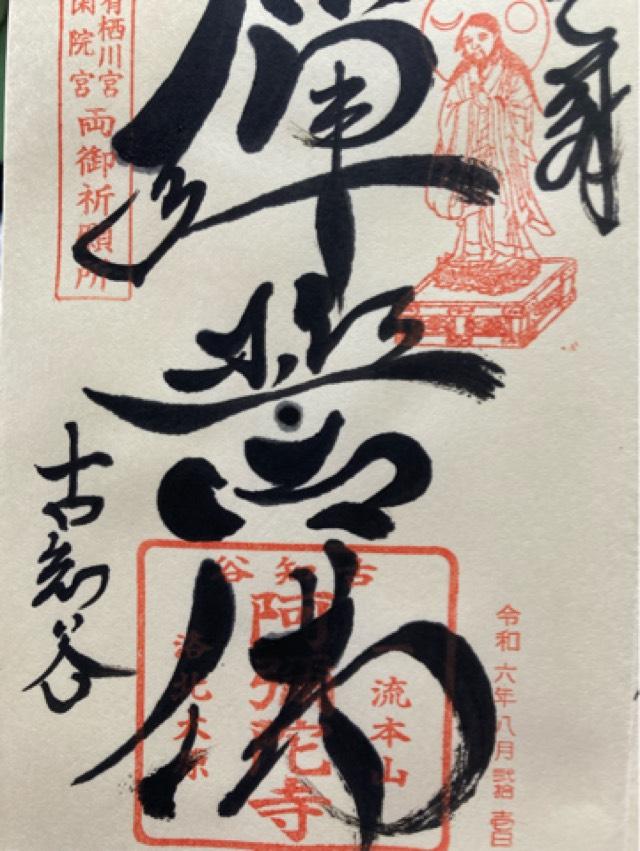 拝
彈誓佛
古知谷
有栖川宮
閑院宮
両御祈願所
古知谷
一流本山
阿彌陀寺
洛北大原
令和六年八月弐拾壱日